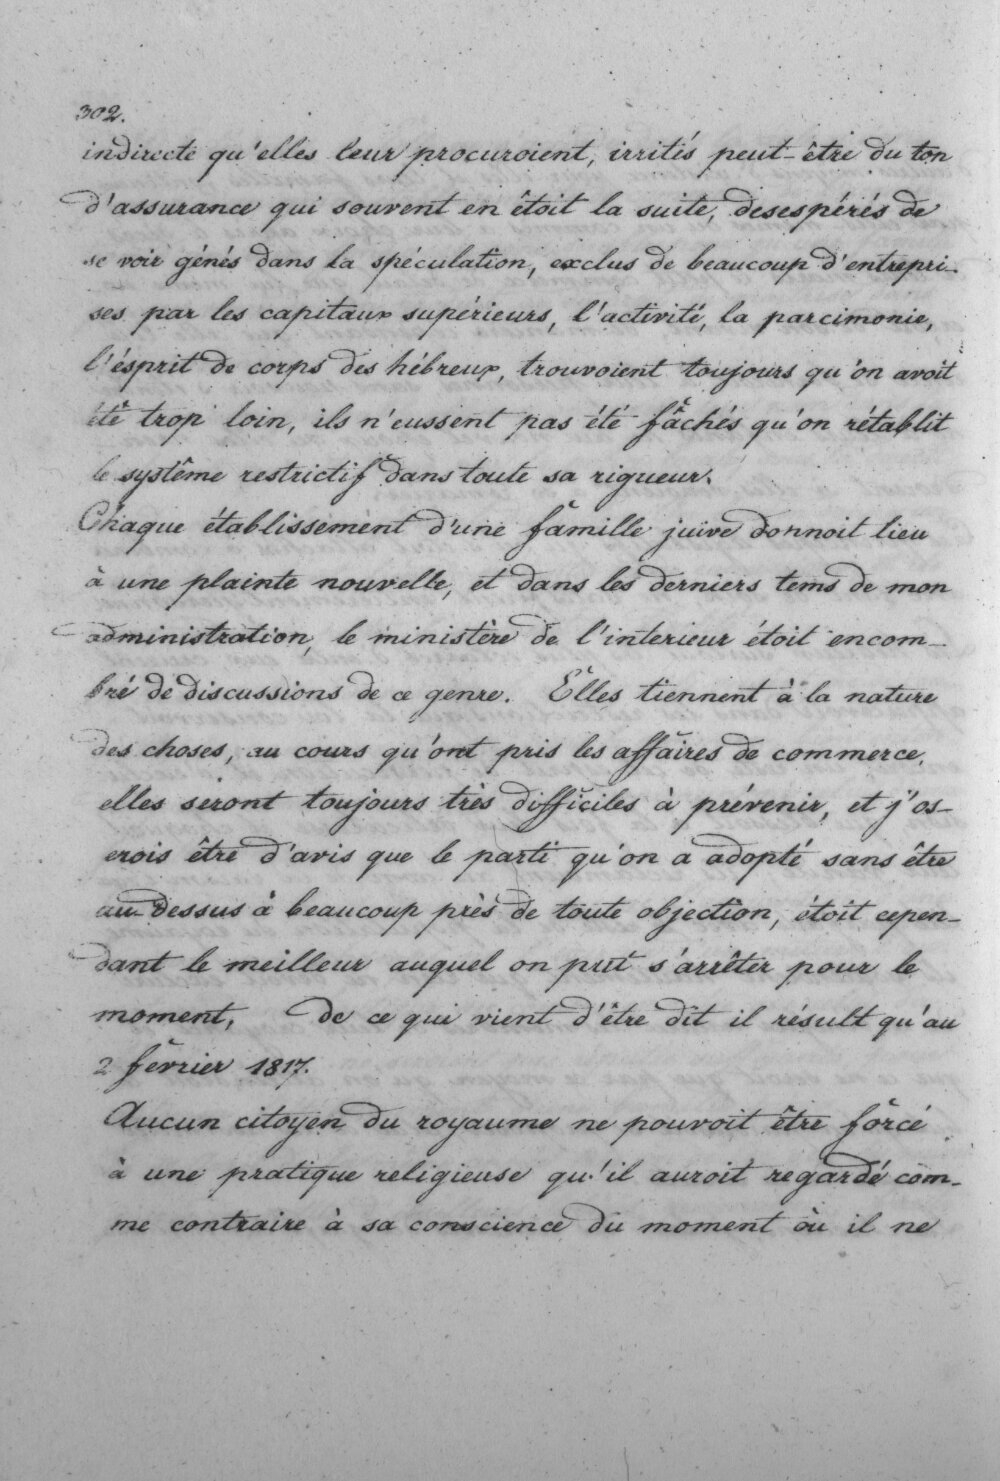 302.
indirecte qu'elles leur procuroient, irrités peut-être du ton
d'assurance qui souvent en êtoit la suite, desespérés de
se voir génés dans la spéculation, exclus de beaucoup d'entrepri-
ses par les capitaux supérieurs, l'activité, la parcimonie,
l'ésprit de corps des hébreux, trouvoient toujours qu'on avoit
été trop loin, ils n'eussent pas été fâchés qu'on rétablit
le systême restrictif dans toute sa rigueur.
Chaque établissement d'une famille juive donnoit lieu
à une plainte nouvelle, et dans les derniers tems de mon
administration, le ministère de l'interieur étoit encom-
bré de discussions de ce genre. Elles tiennent à la nature
des choses, au cours qu'ont pris les affaires de commerce,
elles seront toujours très difficiles à prévenir, et j'os-
erois être d'avis que le parti qu'on a adopté sans être
au-dessus à beaucoup près de toute objection, étoit cepen-
dant le meilleur auquel on put s'arrêter pour le
moment. De ce qui vient d'être dit il résult qu'au
2 février 1817.
Aucun citoyen du royaume ne pouvoit être forcé
à une pratique religieuse qu'il auroit regardé com-
me contraire à sa conscience du moment où il ne